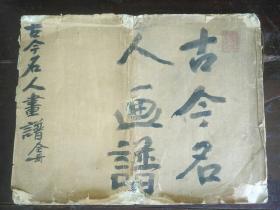 古今名
人画譜
古今名人畫譜全